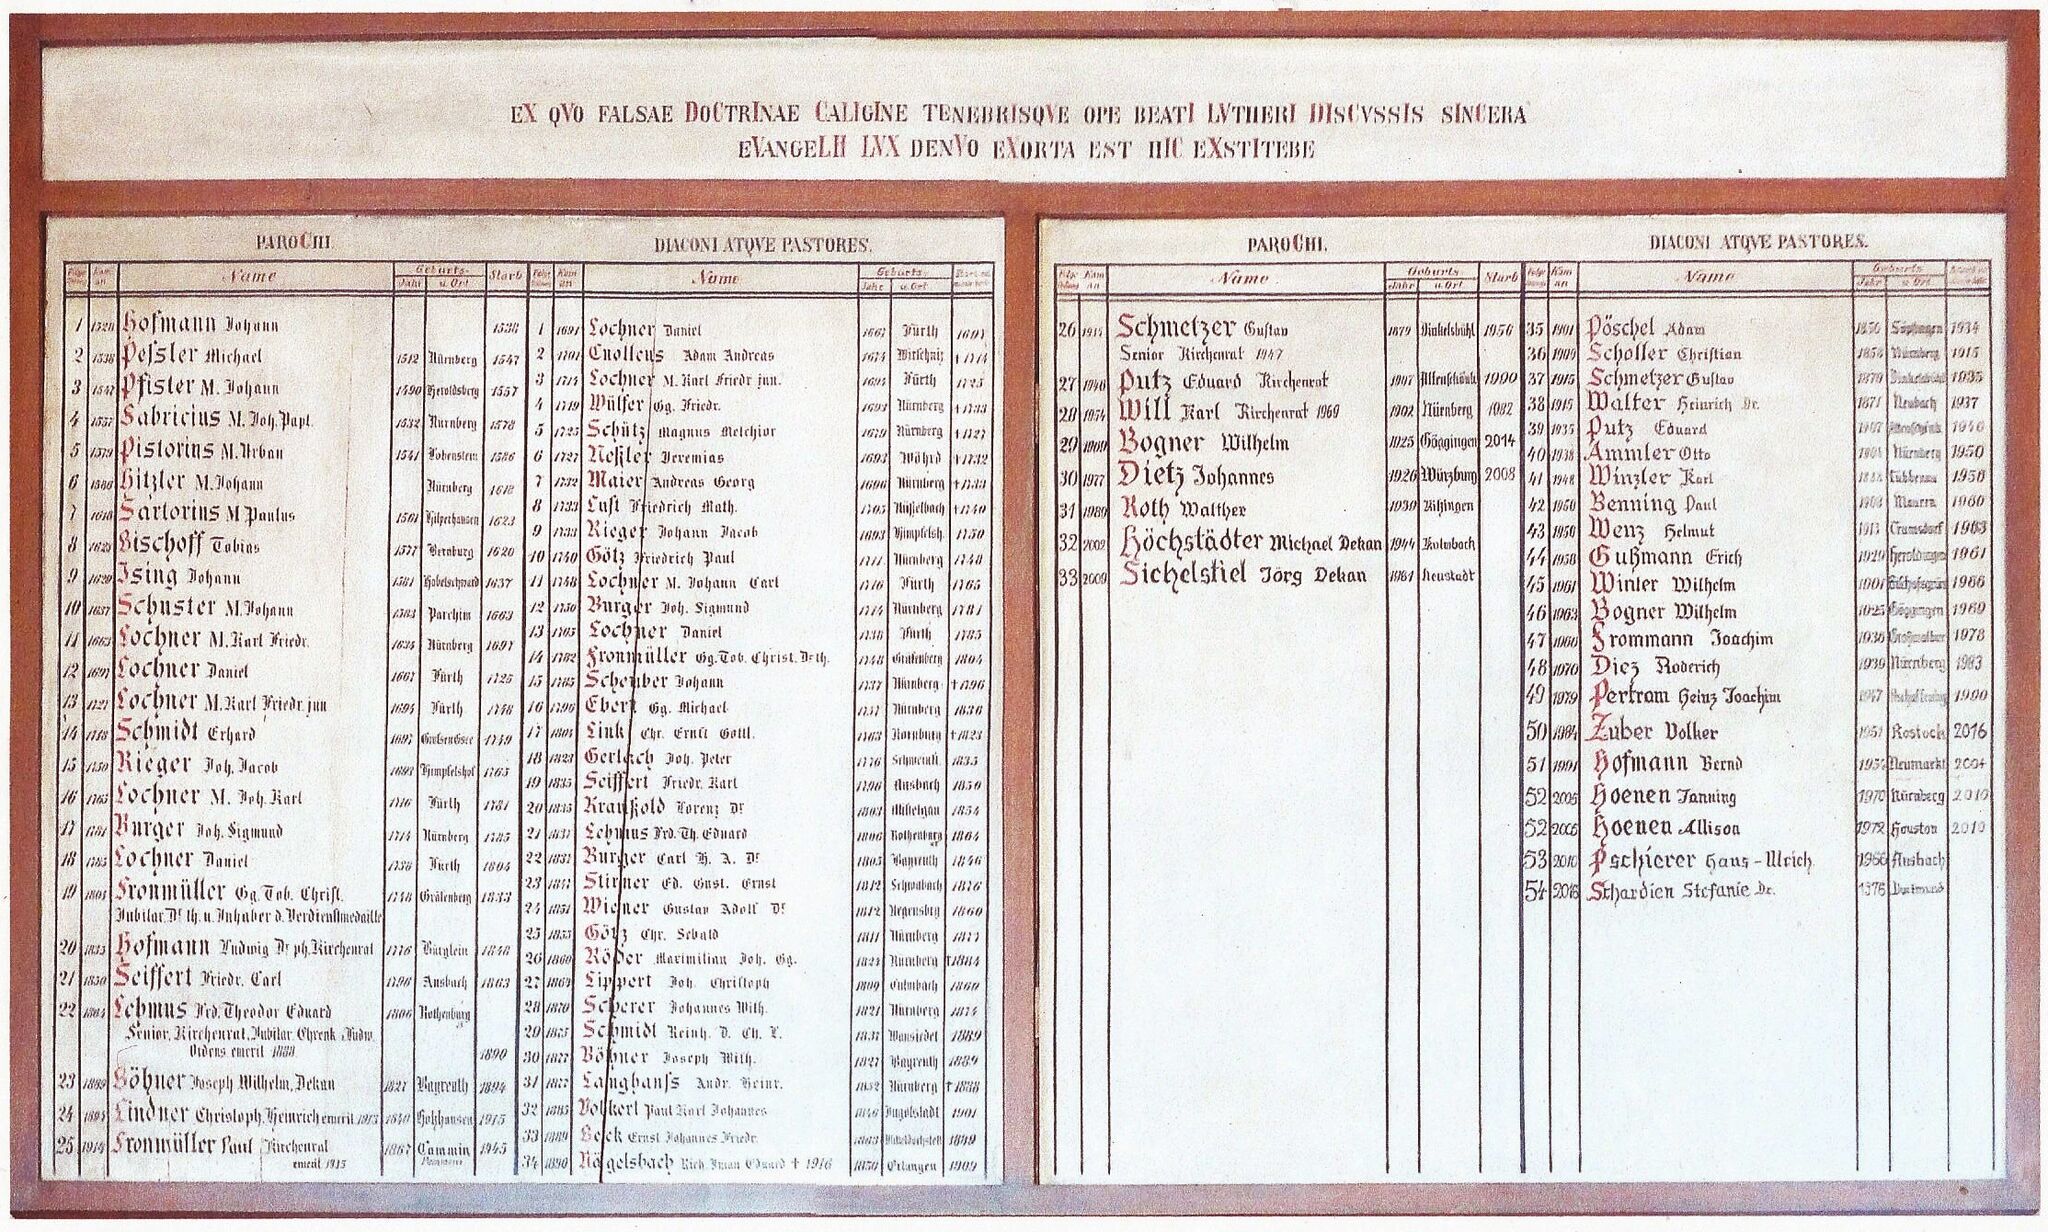 EX QVO FALSAE DOCTRINAE CALIGINE TENEBRISQVE OPE BEATI LVTHERI DISCVSSIS SINCERA
EVANGELII LVX DENVO EXORTA EST HIC EXSTITERE
PAROCHI.
Kam an Name Geburts- Jahr u. Ort Starb
1 1528 Hofmann Johann 1538
2 1538 Pessler Michael 1512 Nürnberg 1547
3 1547 Pfister M. Johann 1490 Heroldsberg 1557
4 1557 Fabricius M. Joh. Papt. 1532 Nürnberg 1578
5 1579 Pistorius M. Urban 1541 Lobenstein 1586
6 1586 Hitzler M. Johann Nürnberg 1618
7 1618 Sartorius M Paulus 1561 Hilperhausen 1623
8 1623 Bischoff Tobias 1577 Bernburg 1620
9 1629 Ising Johann 1581 Habelschward 1637
10 1637 Schuster M. Johann 1583 Parchim 1663
11 1663 Lochner M. Karl Friedr. 1634 Nürnberg 1697
12 1697 Lochner Daniel 1667 Fürth 1725
13 1727 Lochner M. Karl Friedr. jun 1694 Fürth 1748
14 1748 Schmidt Erhard 1697 1749
15 1750 Rieger Joh. Jacob 1693 Himpfelshof 1765
16 1765 Lochner M. Joh. Karl 1716 Fürth 1781
17 1781 Burger Joh. Sigmund 1714 Nürnberg 1785
18 1785 Lochner Daniel 1738 Fürth 1804
19 1804 Fronmüller Gg. Tob. Christ. 1748 Gräfenberg 1833
Jubilar. Dr. th. u. Inhaber d. Verdienstmedaille
20 1833 Hofmann Ludwig Dr. ph. Kirchenrat 1776 Bürglein 1848
21 1850 Seiffert Friedr. Carl 1796 Ansbach 1863
22 1864 Lehmus Frd. Theodor Eduard 1806 Rothenburg
Senior, Kirchenrat, Jubilar. Ehrenk. Ludw.
Ordens emerit 1889 1890
23 1889 Böhner Joseph Wilhelm, Dekan 1827 Bayreuth 1894
24 1894 Lindner Christoph, Heinrich emerit 1913 1840 Holzhausen 1915
25 1914 Fronmüller Paul Kirchenrat 1867 Cammin 1945
emerit 1915
DIACONI ATQVE PASTORES.
Kam an Name Geburts- Jahr u. Ort
1 1691 Lochner Daniel 1667 Fürth 1697
2 1701 Cnolleus Adam Andreas 1674 †1714
3 1714 Lochner M. Karl Friedr. jun. 1694 Fürth 1725
4 1719 Wülfer Gg. Friedr. 1693 Nürnberg †1733
5 1725 Schütz Magnus Melchior 1679 Nürnberg †1727
6 1727 Neßler Jeremias 1693 Wöhrd †1732
7 1732 Maier Andreas Georg 1696 Nürnberg †1733
8 1733 Lust Friedrich Math. 1705 †1740
9 1733 Rieger Johann Jacob 1693 Himpfelsh. 1750
10 1740 Götz Friedrich Paul 1711 Nürnberg 1748
11 1748 Lochner M. Johann Carl 1716 Fürth 1765
12 1750 Burger Joh. Sigmund 1714 Nürnberg 1781
13 1765 Lochner Daniel 1738 Fürth 1785
14 1782 Fronmüller Gg. Tob. Christ. Dr. th. 1748 Gräfenberg 1804
15 1785 Scheuber Johann 1737 Nürnberg †1796
16 1796 Ebert Gg. Michael 1757 Nürnberg 1836
17 1804 Link Chr. Ernst Gottl. 1763 Kornburg †1823
18 1823 Gerlach Joh. Peter 1776 Schweinf. 1835
19 1835 Seiffert Friedr. Karl 1796 Ansbach 1850
20 1835 Kraußold Lorenz Dr. 1803 Mistelgau 1854
21 1837 Lehmus Frd. Th. Eduard 1806 Rothenburg 1864
22 1837 Burger Carl H. A. Dr. 1805 Bayreuth 1846
23 1847 Stirner Ed. Gust. Ernst 1812 Schwabach 1876
24 1851 Wiener Gustav Adolf Dr. 1812 Regensbrg 1860
25 1855 Götz Chr. Sebald 1811 Nürnberg 1877
26 1860 Röder Maximilian Joh. Gg. 1824 Nürnberg †1884
27 1864 Lippert Joh. Christoph 1809 Culmbach 1869
28 1870 Scherer Johannes Wilh. 1821 Nürnberg 1874
29 1875 Schmidt Reinh. D. Ch. L. 1837 Wunsiedel 1889
30 1877 Böhner Joseph Wilh. 1827 Bayreuth 1889
31 1877 Langhanss Andr. Heinr. 1852 Nürnberg †1888
32 1885 Volkert Paul Karl Johannes 1846 Ingolstadt 1901
33 1889 Beck Ernst Johannes Friedr. 1863 1889
34 1890 Nägelsbach Rich. Iwan Eduard † 1916 1850 Erlangen 1909
PAROCHI.
Kam an Name Geburts Jahr u. Ort Starb
26 1915 Schmetzer Gustav 1879 Dinkelsbühl 1956
Senior Kirchenrat 1947
27 1946 Putz Eduard Kirchenrat 1907 Altenschönb. 1990
28 1954 Will Karl Kirchenrat 1969 1902 Nürnberg 1982
29 1969 Bogner Wilhelm 1925 Göggingen 2014
30 1977 Dietz Johannes 1926 Würzburg 2008
31 1989 Roth Walther 1939 Kitzingen
32 2002 Höchstädter Michael Dekan 1944 Kulmbach
33 2009 Sichelstiel Jörg Dekan 1961 Neustadt
DIACONI ATQVE PASTORES.
Kam an Name Geburts Jahr u. Ort
35 1901 Pöschel Adam 1856 1934
36 1909 Scholler Christian 1858 Nürnberg 1915
37 1915 Schmetzer Gustav 1879 Dinkelsbühl 1935
38 1915 Walter Heinrich Dr. 1871 Neubach 1937
39 1935 Putz Eduard 1907 1946
40 1938 Ammler Otto 1904 Nürnberg 1950
41 1948 Winzler Karl Lübbenau 1958
42 1950 Benning Paul 1908 1960
43 1950 Wenz Helmut 1913 Cramsdorf 1963
44 1958 Gußmann Erich 1929 Heroldingen 1961
45 1961 Winter Wilhelm 1901 1966
46 1963 Bogner Wilhelm 1925 Göggingen 1969
47 1966 Frommann Joachim 1936 1978
48 1970 Diez Roderich 1939 Nürnberg 1983
49 1979 Pertram Heinz Joachim 1947 Aschaffenburg 1990
50 1984 Zuber Volker 1951 Rostock 2016
51 1991 Hofmann Bernd 1954 Neumarkt 2004
52 2005 Hoenen Janning 1970 Nürnberg 2010
52 2005 Hoenen Allison 1972 Houston 2010
53 2010 Pschierer Hans-Ulrich 1966 Ansbach
54 2016 Schardien Stefanie Dr. 1976 Dortmund